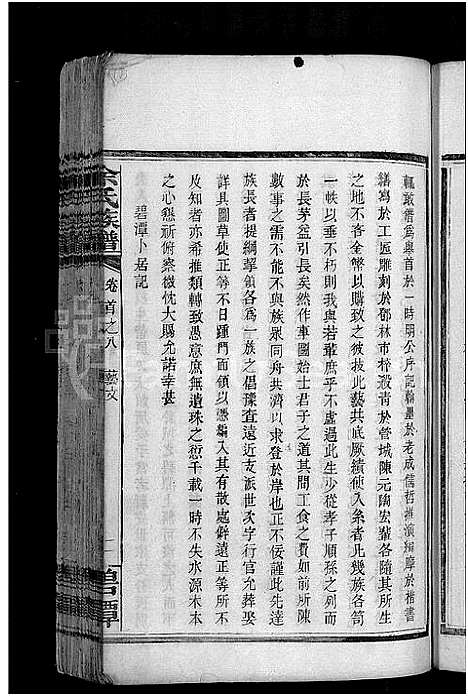 輒敢僭爲舉首於一時明公斤記翰墨於老成信哲推演細摩於楷書
繕寫於工匠雕刻於郁林市梓殺靑於管城陳元陶宏輩各隨其所生
之地不吝金幣以購致之彼技此藝共底厥績使入余者凡幾族各笥
一帙以垂不朽則我與若輩庶乎不虛過此生少從孝子順孫之列而
於長茅益引長矣然作車圖始士君子之道其間工食之費如前所陳
數事之需不能不與族衆同舟共濟以求登於岸也正不佞謹此先達
族長者提綱挈領各爲一族之倡彙查遠近支派世次字行官允葬娶
詳具圖草使正等不日踵門而領以憑編入其有散處僻遠正等所不
及知者亦希推類轉致愚意庶無遺珠之愆千載一時不失水源木本
之心懸祈俯察微忱大賜允諾幸甚
碧潭小居記
余氏族譜
卷首之八
藝文
碧潭